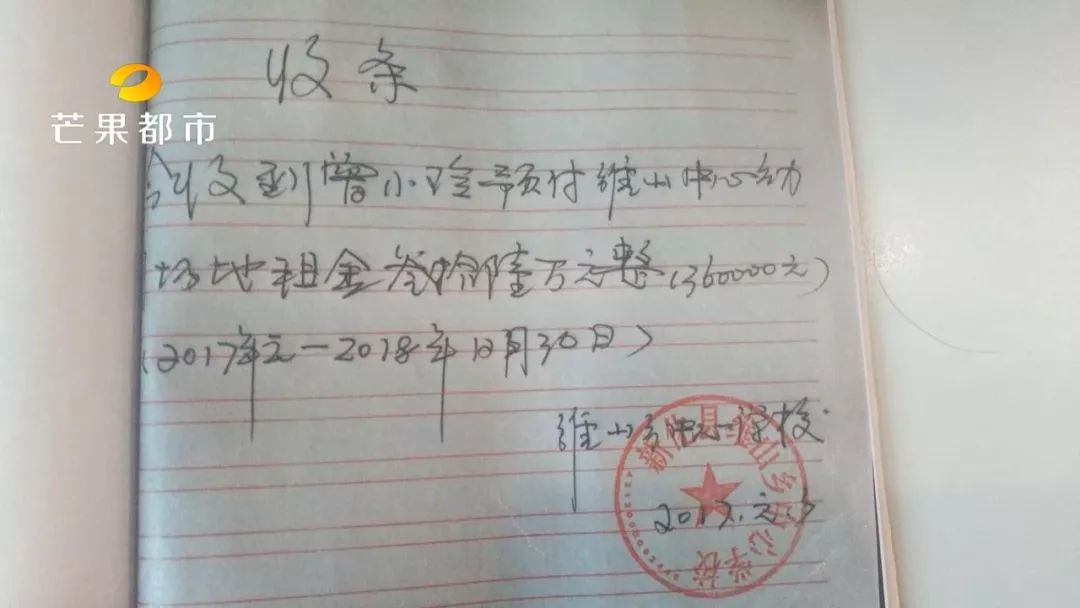 芒果都市
收条
今收到曾小玲预付维山中心幼
场地租金叁拾陆万元整(360000元)
(2017年元-2018年12月30日)
维山乡中心学校
2017.元.3
新化县维山乡中心学校